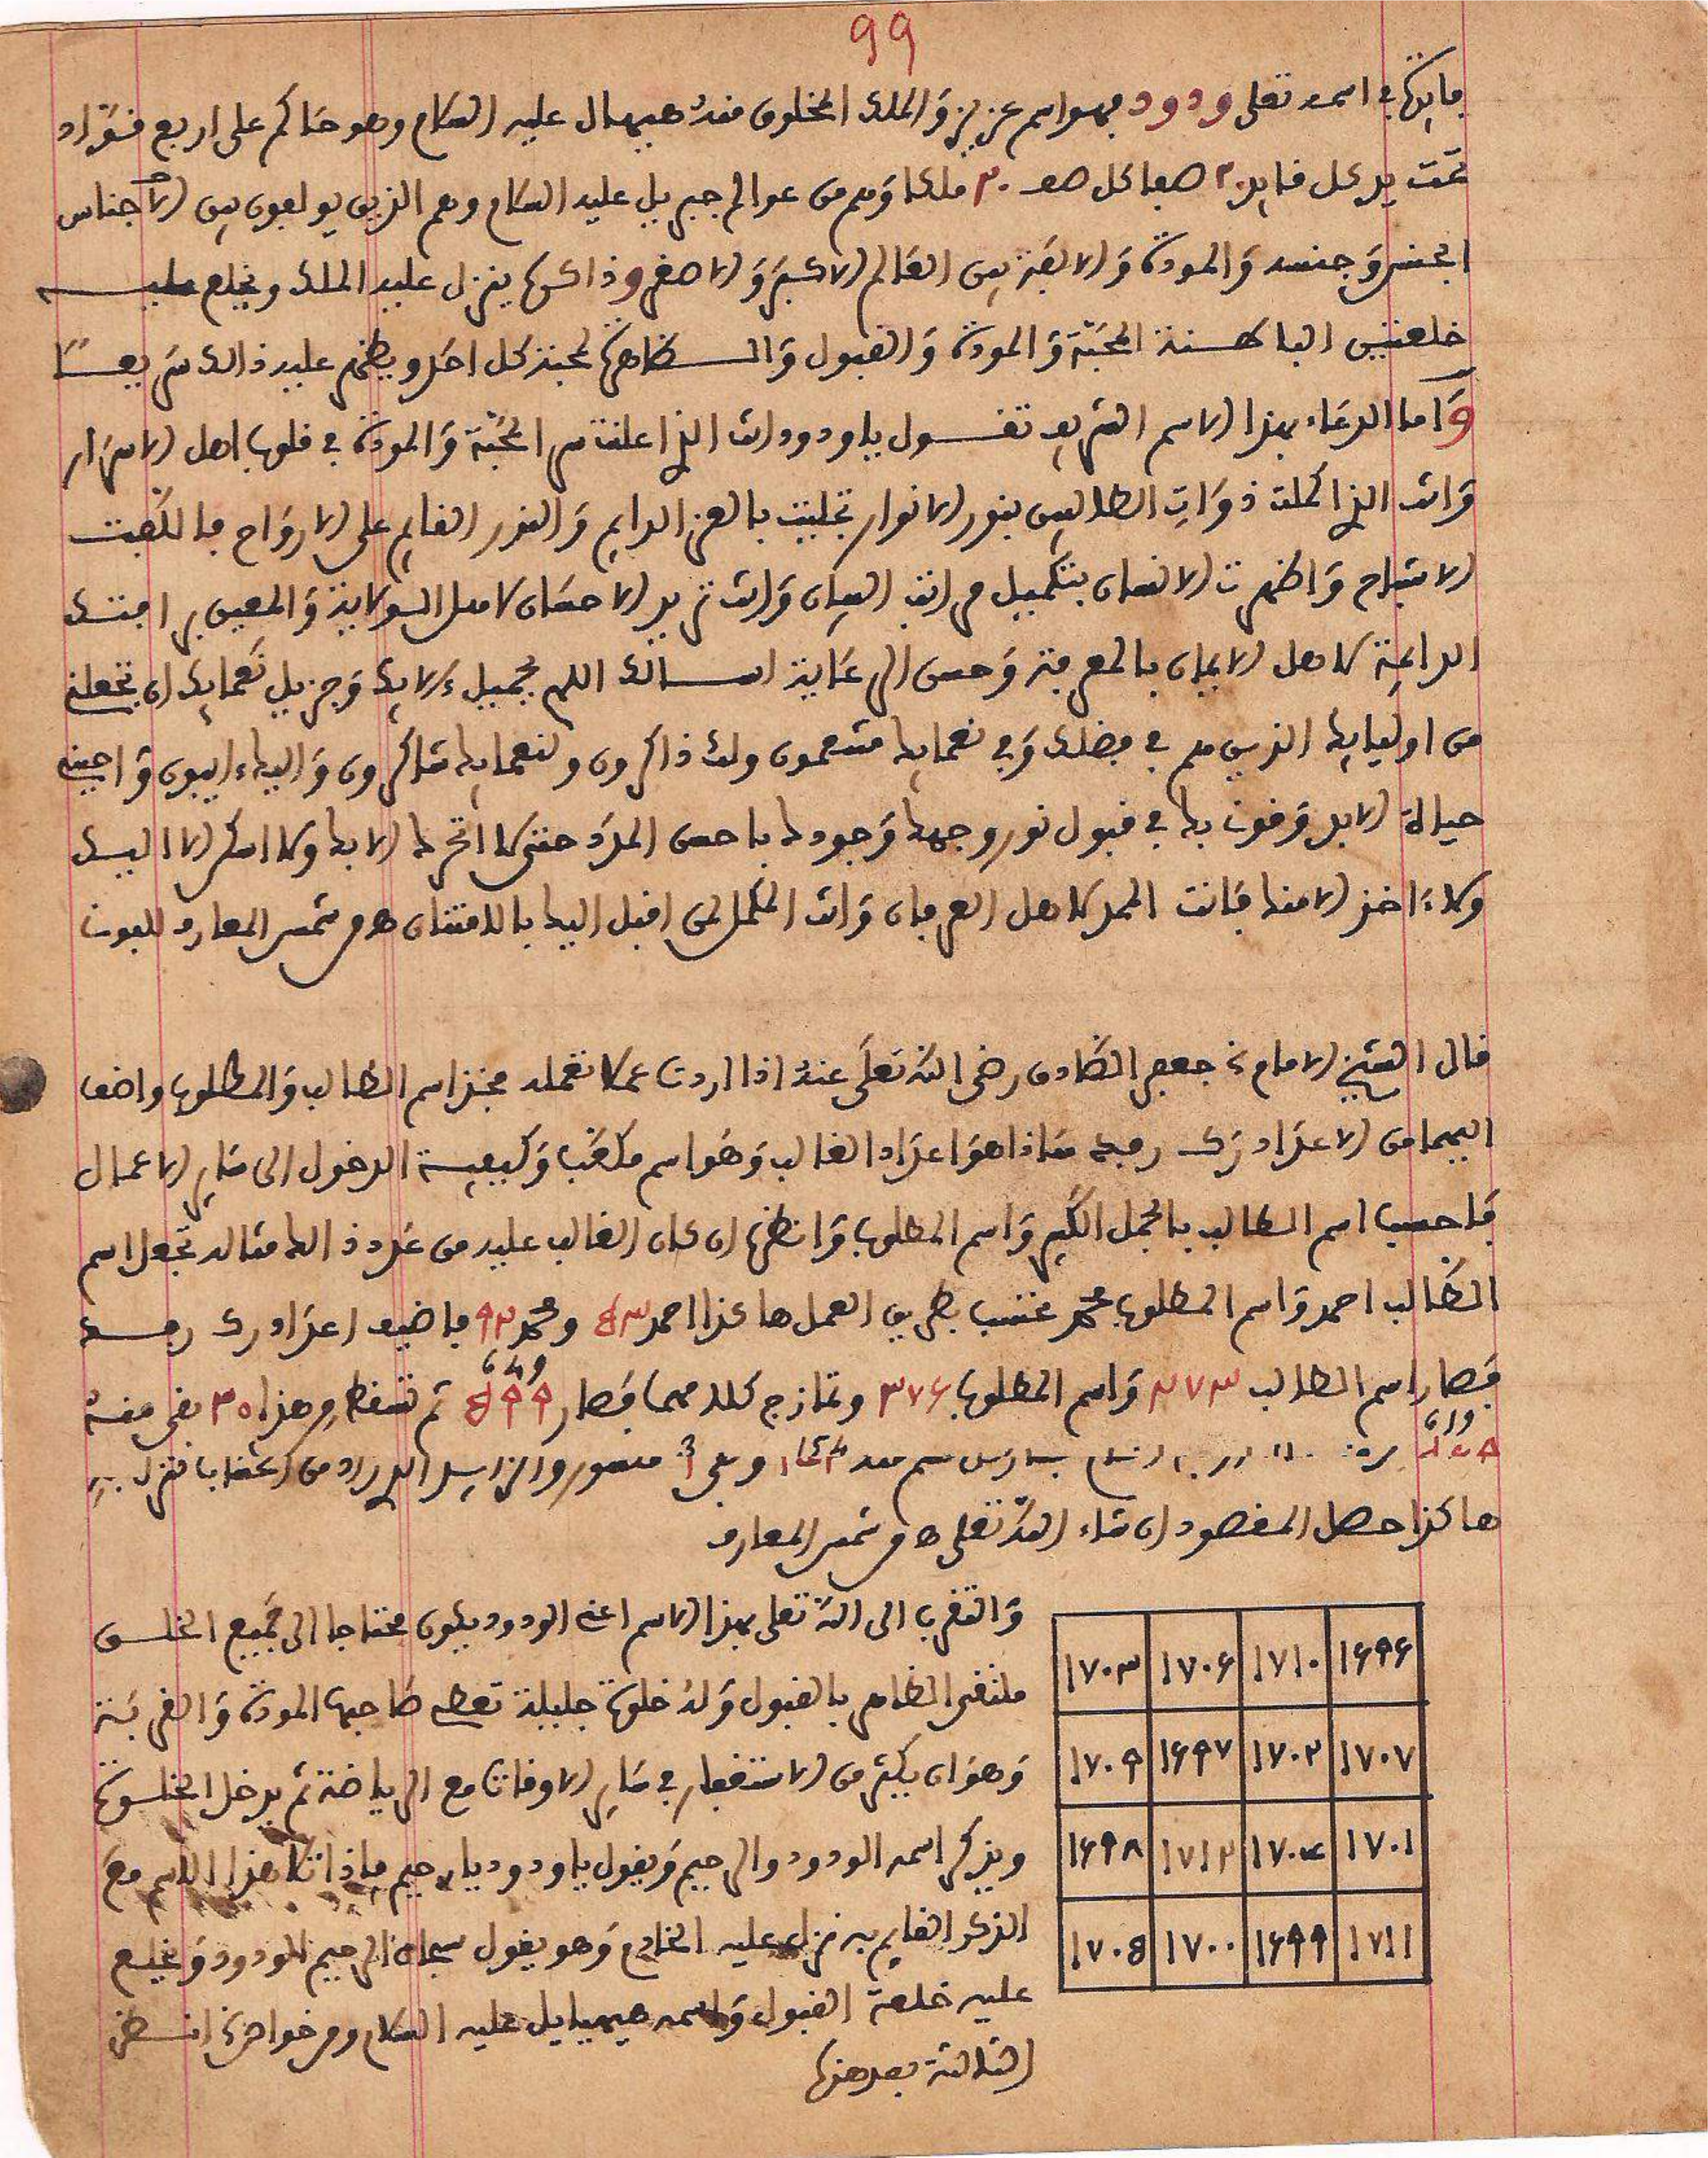 99
فايدة في اسمه تعلى ودود فهو اسم عزيز وَالملك المخلوق منهُ هيهال عليه السلام وهو حاكم على اربع قواد
تحت يد كل قايد ٢٠ صفا كل صف ٢٠ ملكا وَهم من عوالم جبريل عليه السلام وهم الذين يولفون بين الاجناس
الجنس وَجنسه وَالمودة وَالالفة بين العالم الاكبر وَالاصغر وذاكره ينزل عليه الملك ويخلع عليه
خلعتين الباطنة المحبَّة وَالمودة وَالقبول وَالظاهرة لمحبة كل احد ويظهر عليه ذالك سريعًا
وَاما الدعاء بهذا الاسم الشريف تقول يا ودود انت الذي اعلنت سر المحبَّة وَالمودة في قلوب اهل الاسرار
وَانت الذي اكملت ذوَات الطالبين بنور الانوار تجليت بالعز الدايم وَالنور القايم على الارواح فالطفت
الاشباح وَاظهرت الانسان بتكميل مراتب البيان وَانت تريد الاحسان لاهل الولاية وَالمعين بر افتك
الداعية لاهل الايمان بالمعرفة وَحسن الرعَاية اسالك اللهم بجميل ءالايك وَجزيل نعمايك ان تجعلني
من اوليايك الذين هم في فضلك وَفي نعمايك متنعمون ولك ذاكرون ولنعمايك شاكرون وَاليك ءايبون وَاحيني
حياة الابد وَقوت بك في قبول نور وجهك وَجودك باحسن المدد حتى لا اتحرك الا بك ولا اسكن الا اليك
ولا ءاخذ الا منك فانت الممد لاهل العرفان وَانت المكمل لمن اقبل اليك بالامتنان ه من شمس المعارف للبوني
قال الشيخ الامام جعفر الصَّادق رضي اللَّه تعلى عنهُ اذا اردت عملا تعمله فخذ اسم الطالب وَالمطلوب واضف
اليهما من الاعداد رك رفيه هَاذا هوَ اعدَاد الغالب وَهُو اسم مكعَّب وَكيفية الدخول الى سَاير الاعمال
فاحسب اسم الطالب بالجمل الكبير وَاسم المطلوب وَانظر ان كان الغالب عليه من عدد ذالك مثاله تجعل اسم
الطالب احمد وَاسم المطلوب محمد فتحسب بطريق العمل هاكذا احمد ٥٣ ومحمد ٩٢ فاضيف اعداد رك رفيه
فصار اسم الطالب ٢٧٣ وَاسم المطلوب ٣٧٦ وتمازج كلاهما فصار ٥٩٩ ثم تسقط من هذا ٣٠ بقي منهُ
هاكذا حصل المقصود ان شاء اللَّه تعلى ه من شمس المعارف
وَالتقرب الى اللَّه تعلى بهذا الاسم اعني الودود يكون محتاجا الى جميع الخلق
ملتقى الظاهر بالقبول وَلهُ خلوة جليلة تعطي صَاحبها المودة وَالقربَة
وَهوَ ان يكثر من الاستغفار في سَاير الاوقات مع الرياضة ثم يدخل الخلوة
ويذكر اسمه الودود والرحيم وَيقول يا ودود يا رحيم فاذا تلا هذا الاسم معَ
الذكر القايم به نزل عليه الخادم وَهو يقول سبحان الرحيم الودود وَيخلع
عليه خلعة القبول وَاسمه هيهيايل عليه السلام ومن خواصه انظر
الثالثة بعد هذه
١٦٩٦ ١٧١٠ ١٧٠٦ ١٧٠٣
١٧٠٧ ١٧٠٢ ١٦٩٧ ١٧٠٩
١٧٠١ ١٧٠٤ ١٧١٢ ١٦٩٨
١٧١١ ١٦٩٩ ١٧٠٠ ١٧٠٥